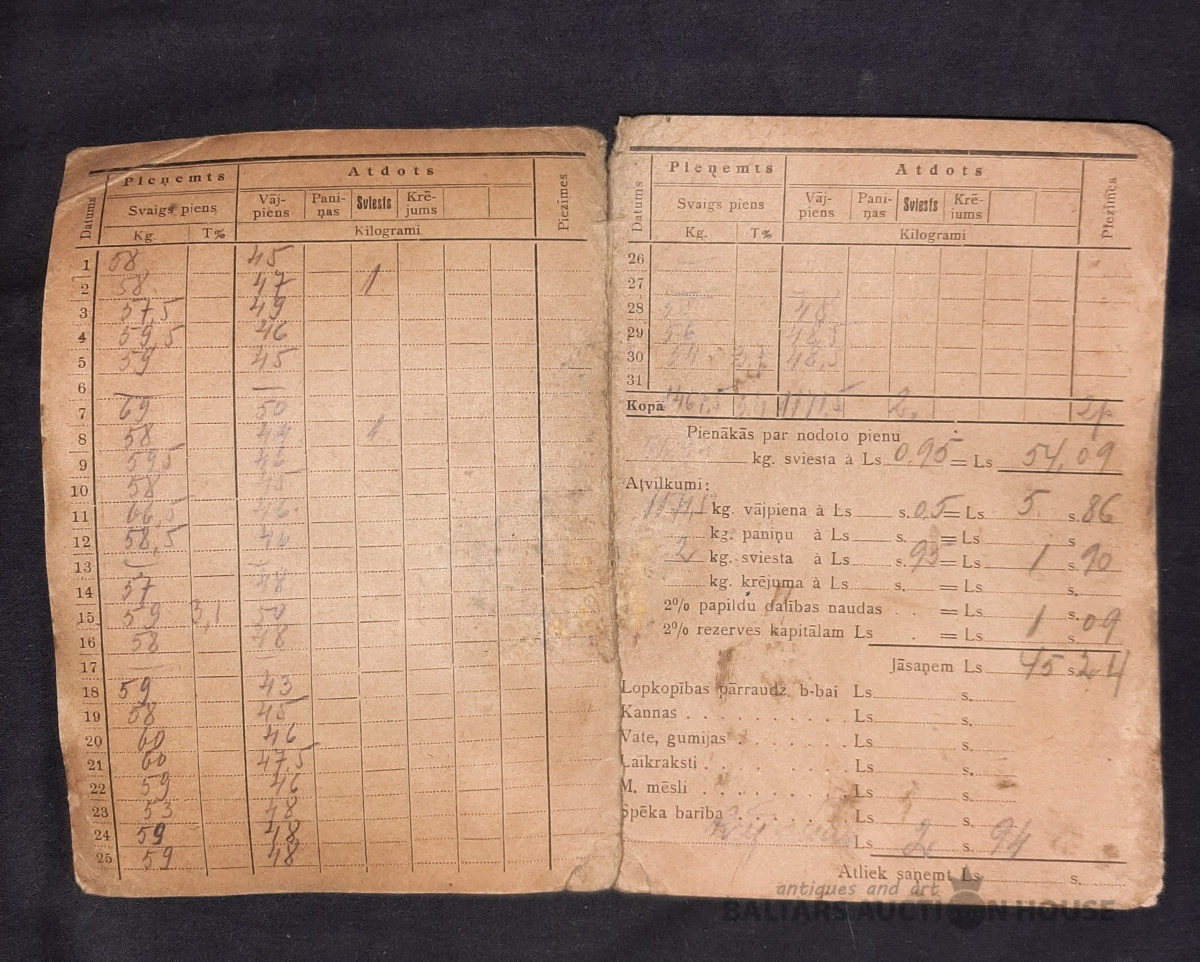 Datums Pieņemts Atdots Piezīmes
Svaigs piens Vāj-piens Pani-ņas Sviests Krē-jums
Kg. T% Kilogrami
1 58 45
2 58 47 1
3 57,5 49
4 59,5 46
5 59 45
6 —
7 69 50
8 58 1
9 59,5
10 58 45
11 66,5
12 58,5
13
14 57 48
15 59 3,1 50
16 58 48
17 —
18 59 43
19 58 45
20 60 46
21 60 47,5
22 59 46
23 53 48
24 59 48
25 59 48
Datums Pieņemts Atdots Piezīmes
Svaigs piens Vāj-piens Pani-ņas Sviests Krē-jums
Kg. T% Kilogrami
26
27
28 48
29 56 48,5
30 48,5
31
Kopā 2
Pienākās par nodoto pienu
kg. sviesta à Ls 0,95 = Ls 54,09
Atvilkumi:
kg. vājpiena à Ls s. 0,5 = Ls 5 s. 86
kg. paniņu à Ls s. = Ls s.
2 kg. sviesta à Ls s. 95 = Ls 1 s. 90
kg. krējuma à Ls s. = Ls s.
2% papildu dalības naudas . = Ls s.
2% rezerves kapitālam Ls . = Ls 1 s. 09
Jāsaņem Ls 45 s. 24
Lopkopības pārraudz. b-bai Ls s.
Kannas . . . . . . . . . . Ls s.
Vate, gumijas . . . . . . . Ls s.
Laikraksti . . . . . . . . . Ls s.
M. mēsli . . . . . . . . . Ls s.
Spēka barība . . . . . . . Ls s.
Ls 2 s. 94
Atliek saņemt Ls s.
antiques and art
BALTARS AUCTION HOUSE